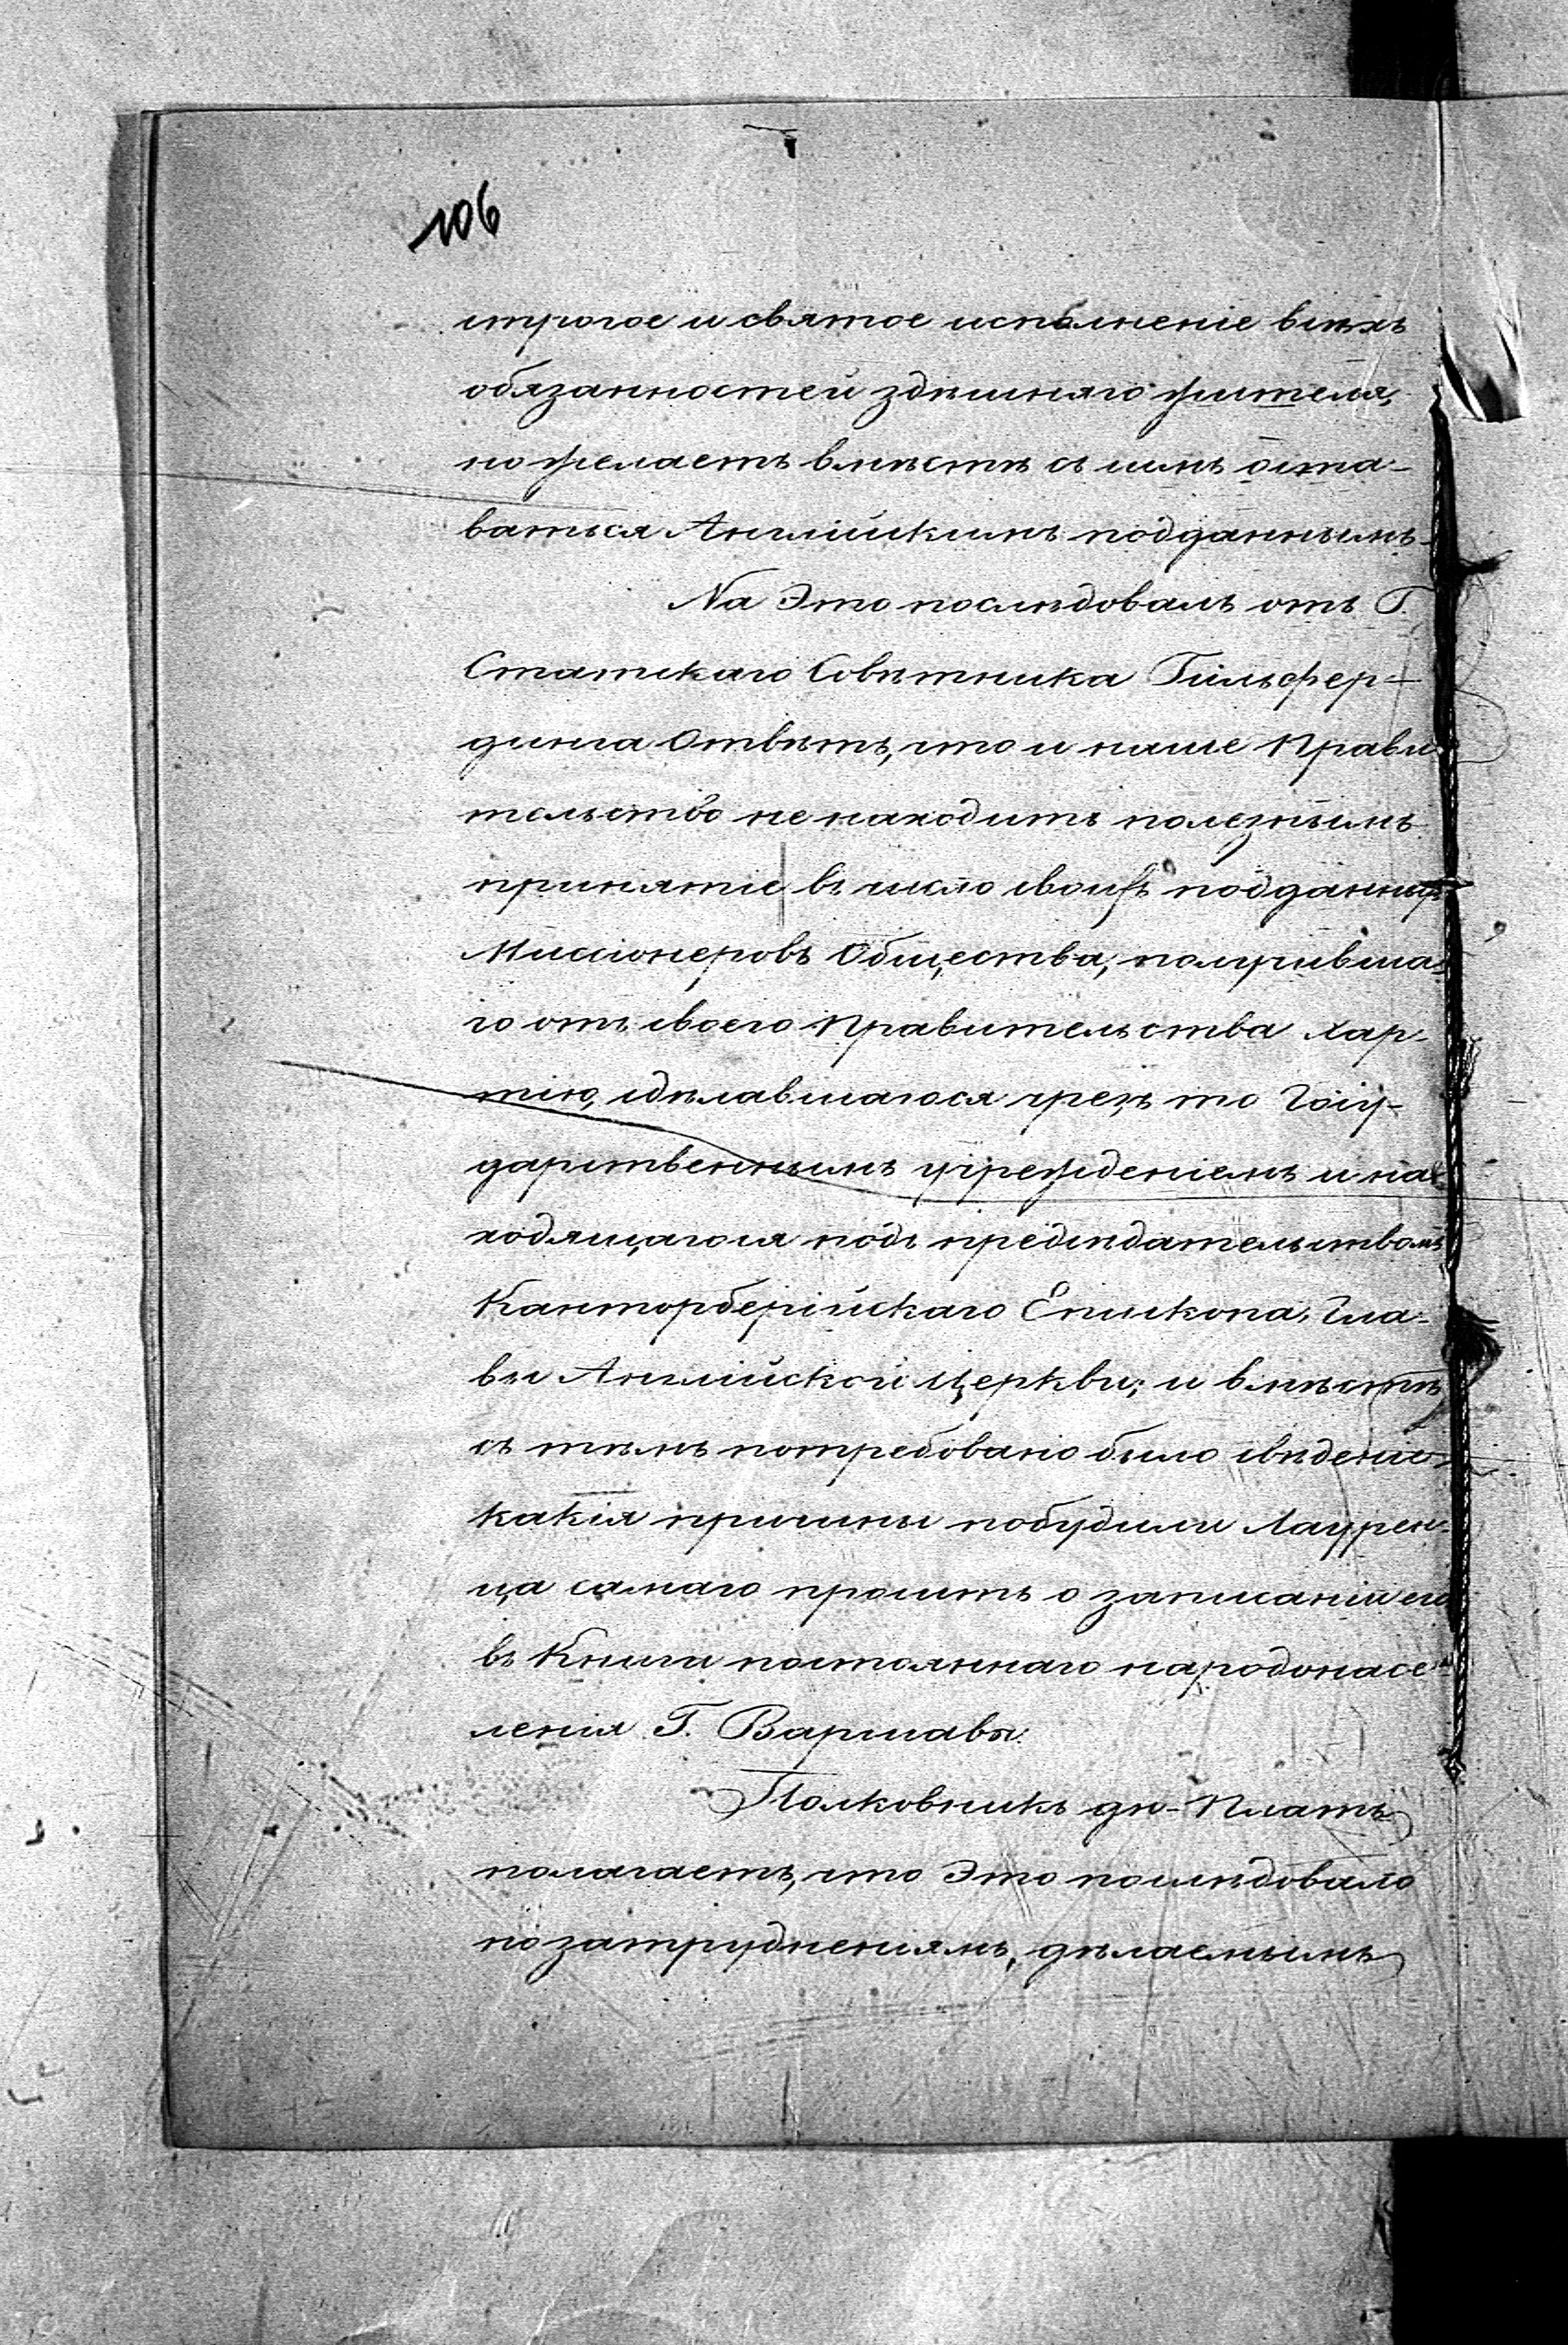 106
строгое и святое исполненіе всѣхъ
обязанностей здѣшняго жителя,
но желаетъ вмѣстѣ съ симъ оста-
ваться Англійскимъ подданнымъ.
На это послѣдовалъ отъ Г.
Статскаго Совѣтника Гильфер-
динга Отвѣтъ, что и наше Прави
тельство не находитъ полезнымъ
принятіе въ число своихъ подданныхъ
Миссіонеровъ Общества, получивша-
го отъ своего Правительства Хар-
тію, сдѣлавшагося чрезъ то Госу-
дарственнымъ учрежденіемъ и на-
ходящагося подъ предсѣдательствомъ
Канторберійскаго Епископа, Гла-
вы Англійской Церкви; и вмѣстѣ
съ тѣмъ потребовано было свѣденіе
какія причины побудили Лаурен-
ца самаго просить о записаніи его
въ Книги постояннаго народонасе-
ленія Г. Варшавы.
Полковникъ дю-Платъ
полагаетъ, что это послѣдовало
по затрудненіямъ, дѣлаемымъ